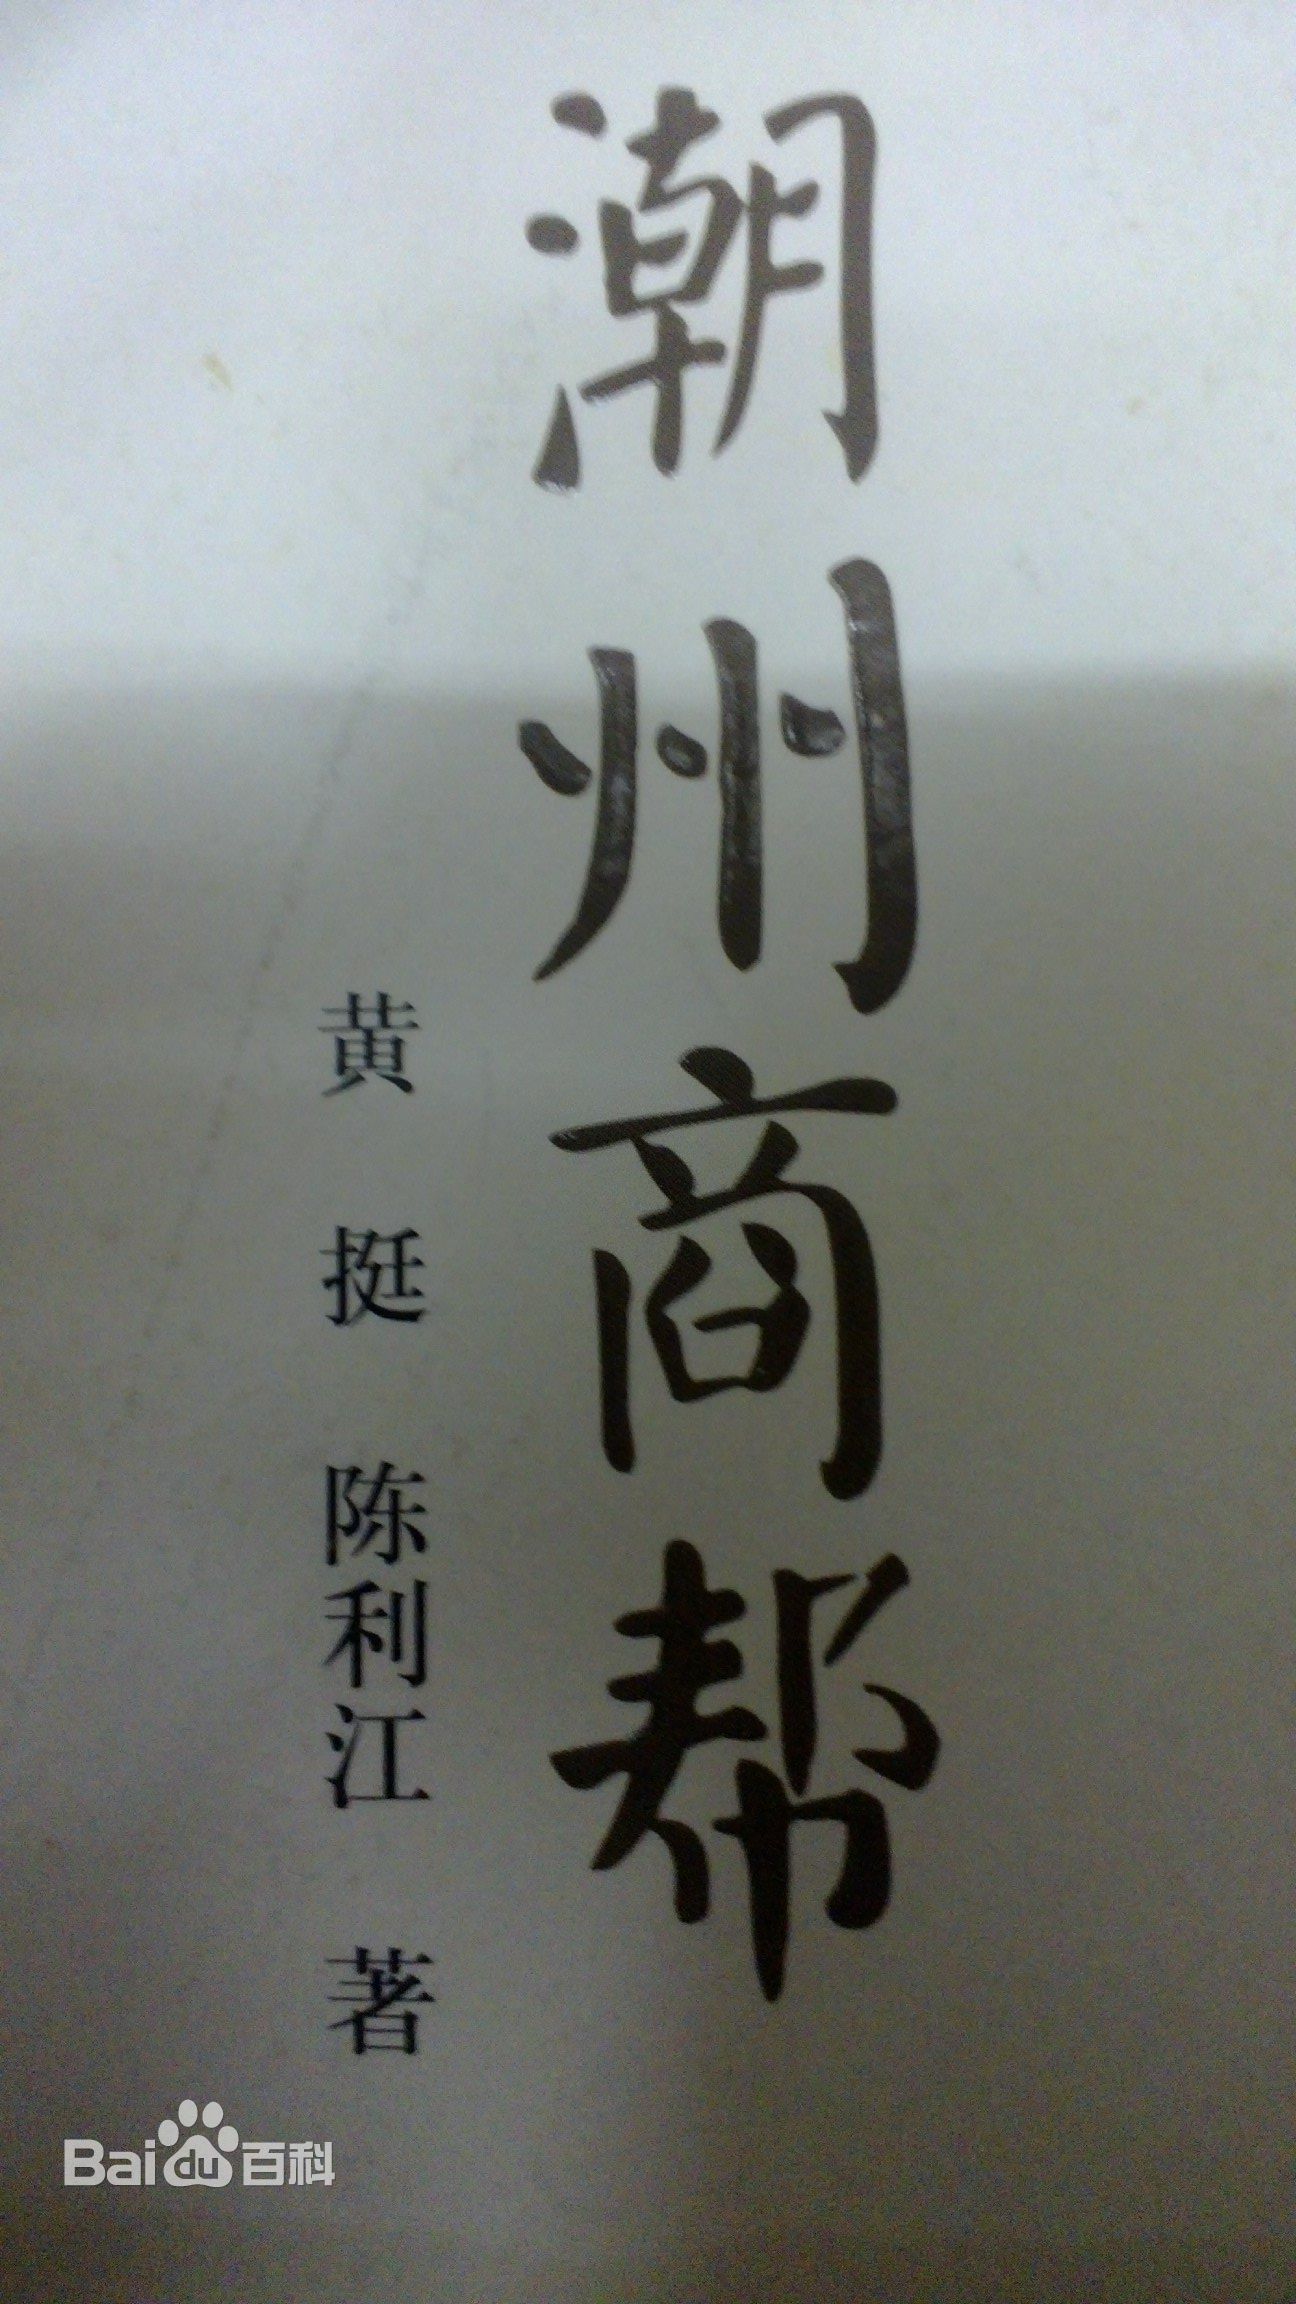 潮州商帮
黄挺 陈利江 著
Bai du 百科